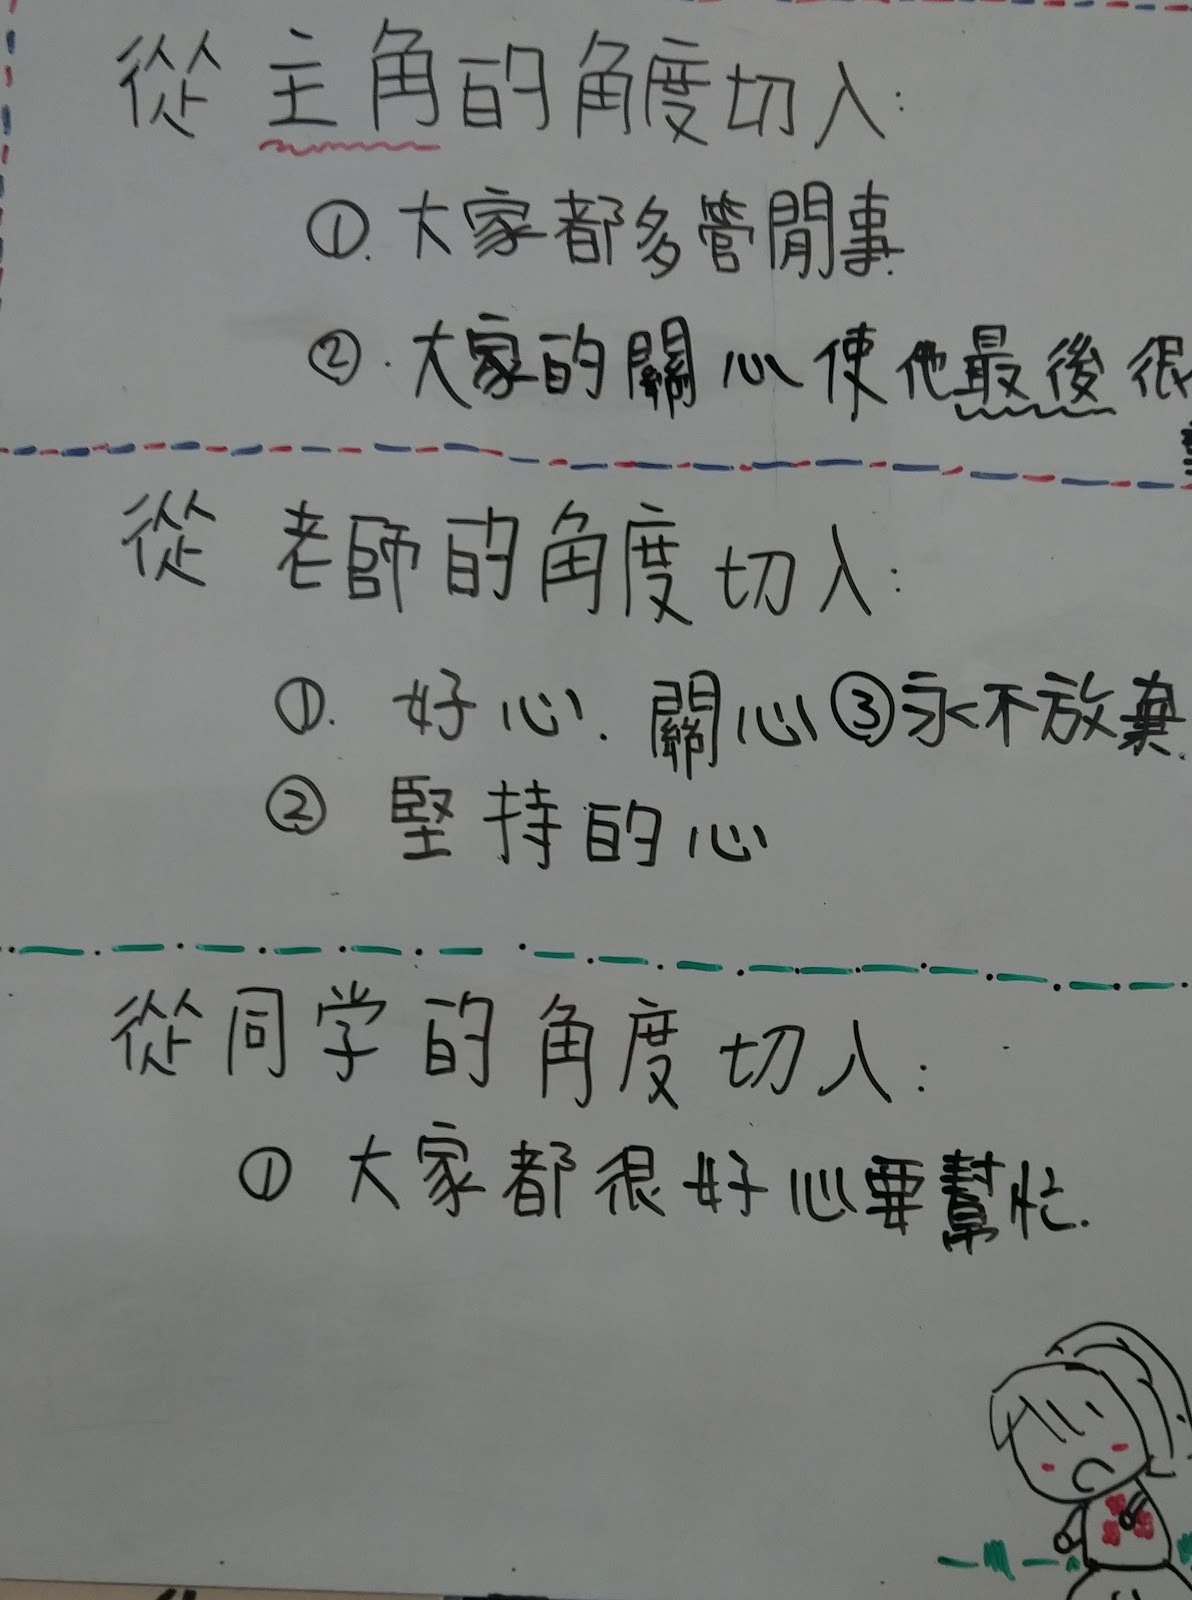 從主角的角度切入:
①.大家都多管閒事.
②.大家的關心使他最後很
從老師的角度切入:
①.好心.關心③永不放棄.
②堅持的心
從同学的角度切入:
①大家都很好心要幫忙.